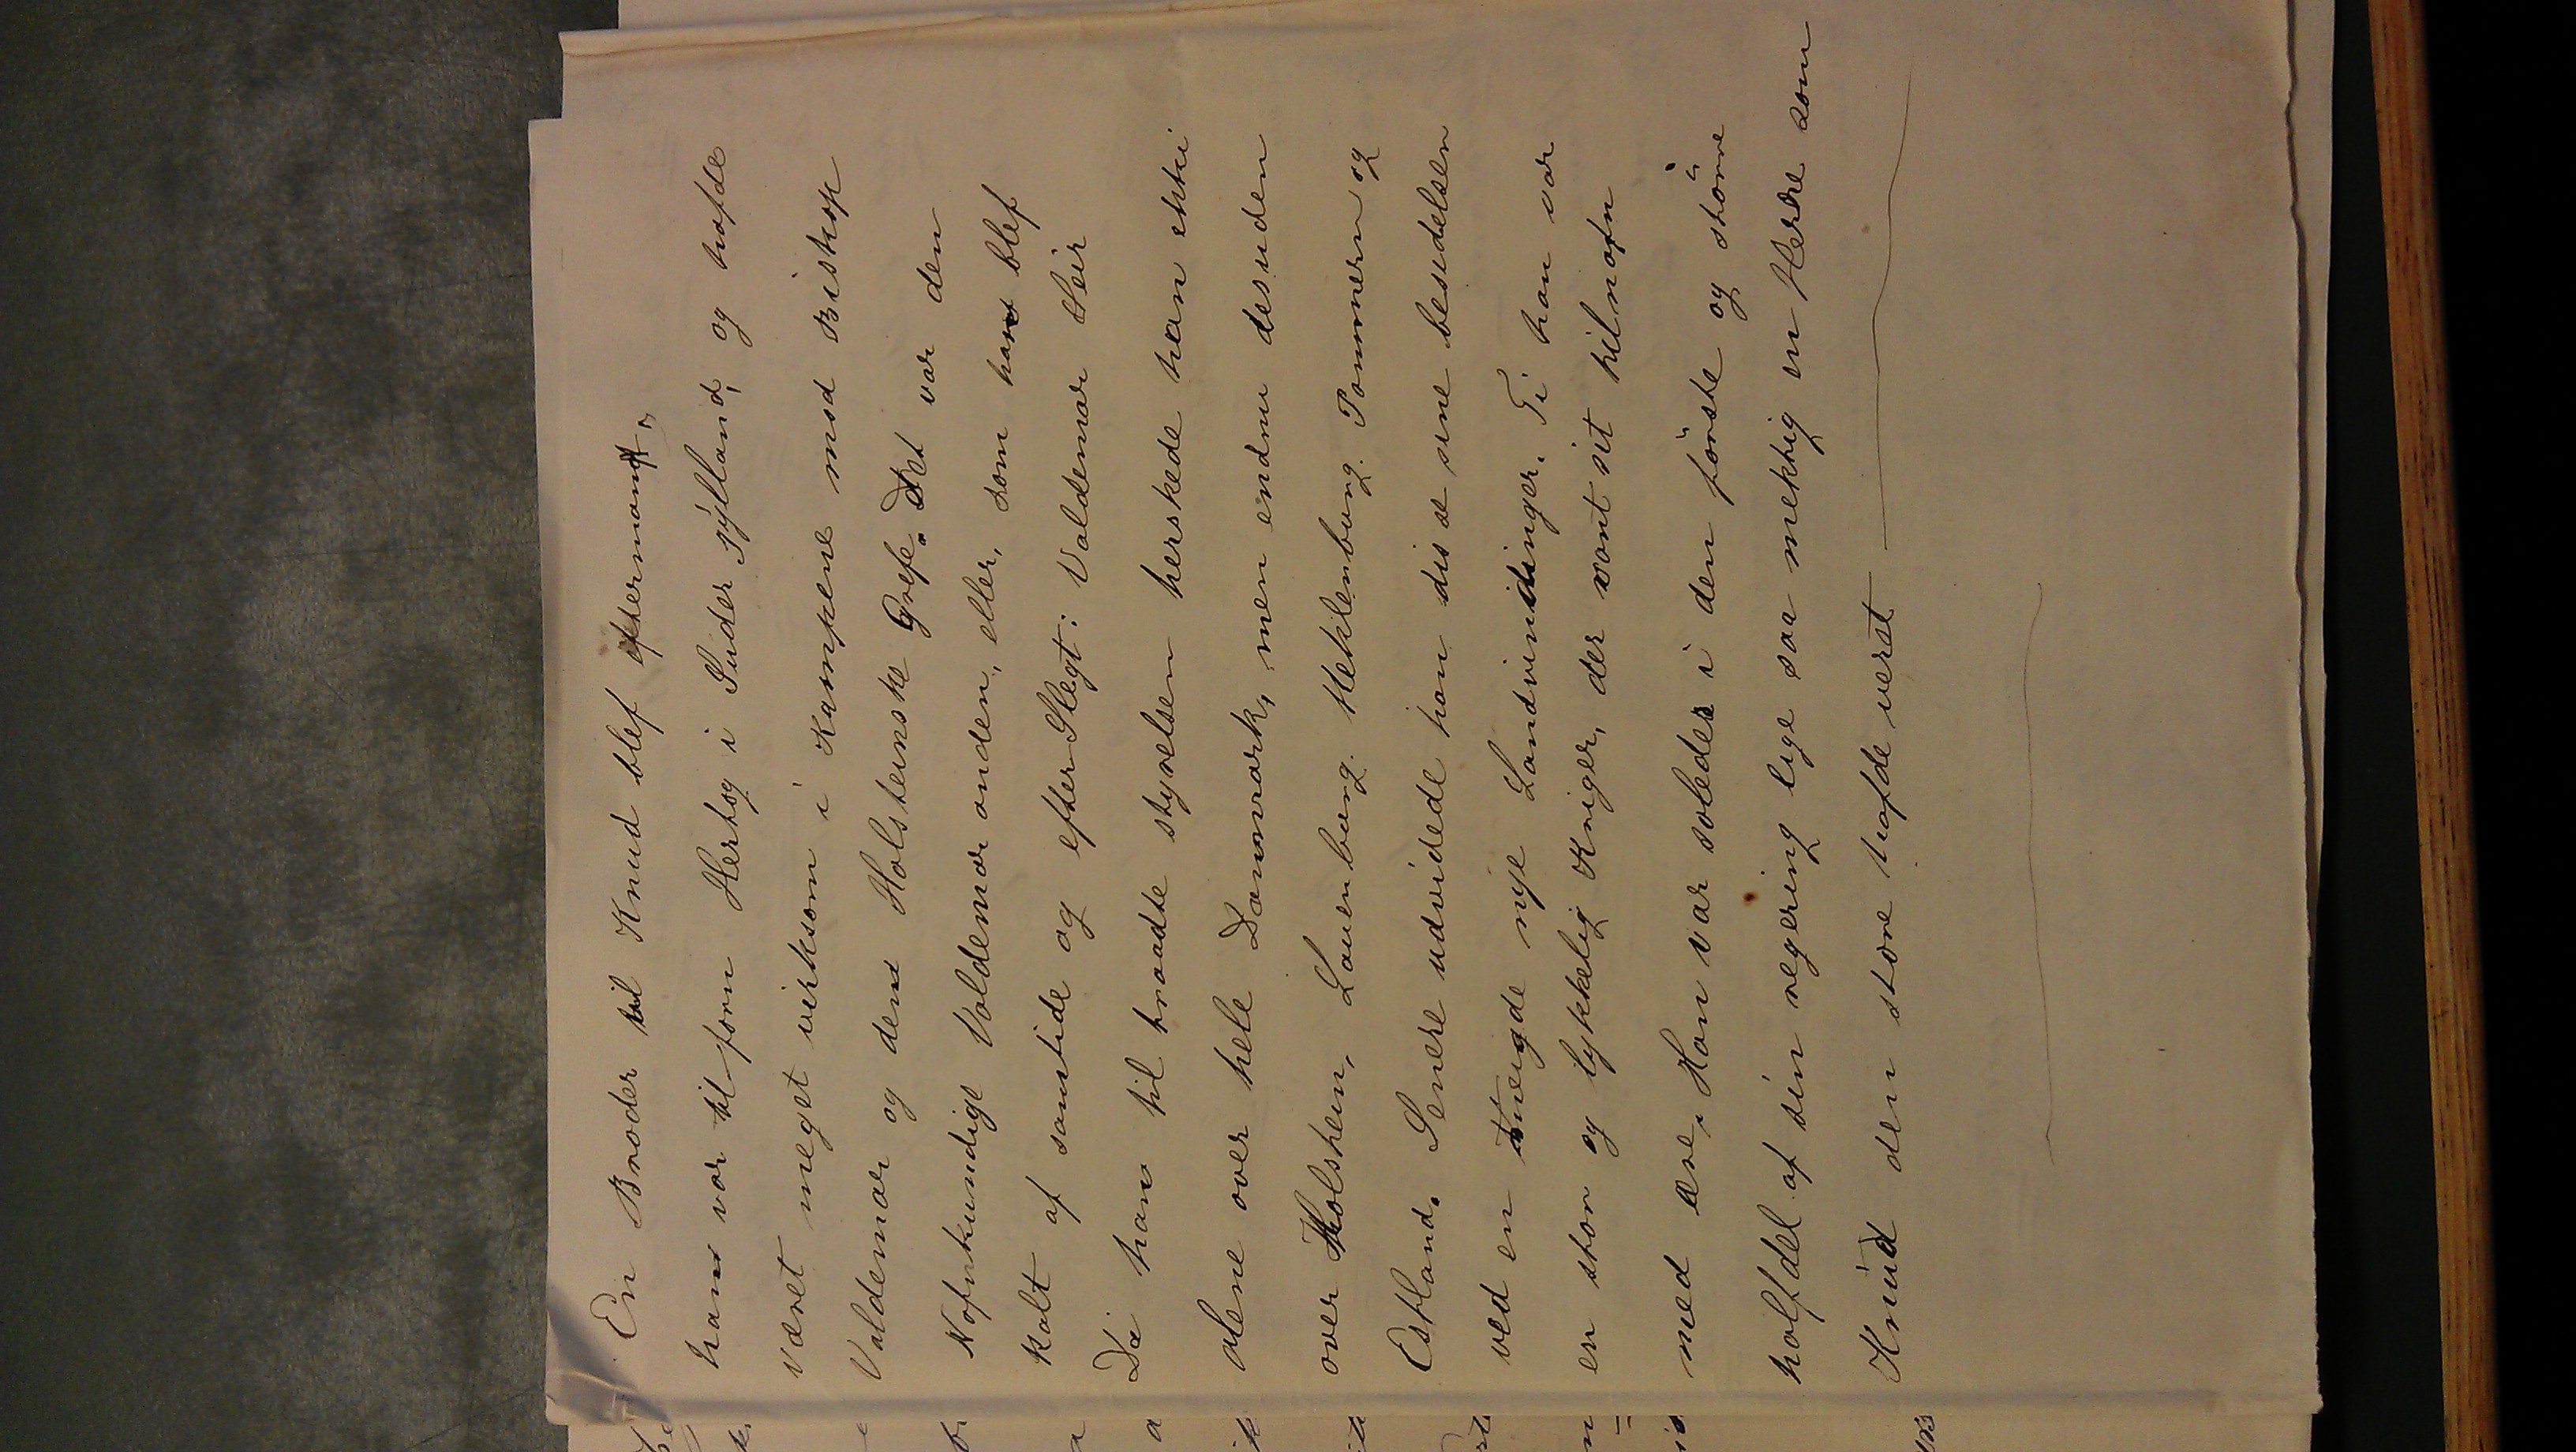 En Broder til Knud blef eftermant,
hans var til forn Hertog i Suder jylland, og hafde
været meget virksom i Kampene mod Biskop
Valdemar og dend Holsteinske Grefe. Det var den
Nofnkundige Valdemar anden, eller, som hand blef
kalt af samtide og efter Slegt: Valdemar Seir
Da han til traadte styrelsen herskede han ekki
alene over hele Danmark, men endnu desuden
over Holstein, Lauenburg. Meklenburg. Pommern og
Estland. Senere udvidede han disse sine besidelsen
ved en mengde nye Landvindinger. Ti han var
en stor og lykkelig Kriger, der vant sit tilnafn
med ære. Han var soledes i den förste og större
halfdel af sin regering lige saa mektig en Herre som
Knud den store hafde verst